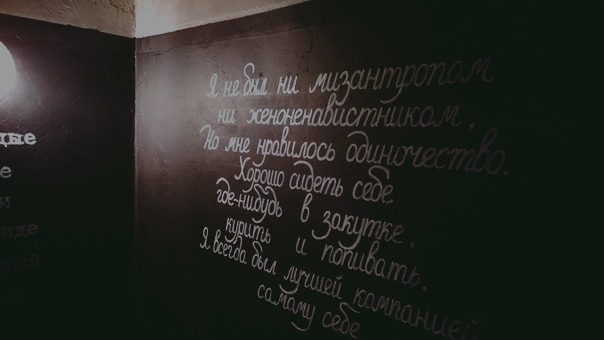 Я не был ни мизантропом
ни женоненавистником.
Но мне нравилось одиночество.
Хорошо сидеть себе
где-нибудь в закутке,
курить и попивать.
Я всегда был лучшей компанией
самому себе
иде
ной